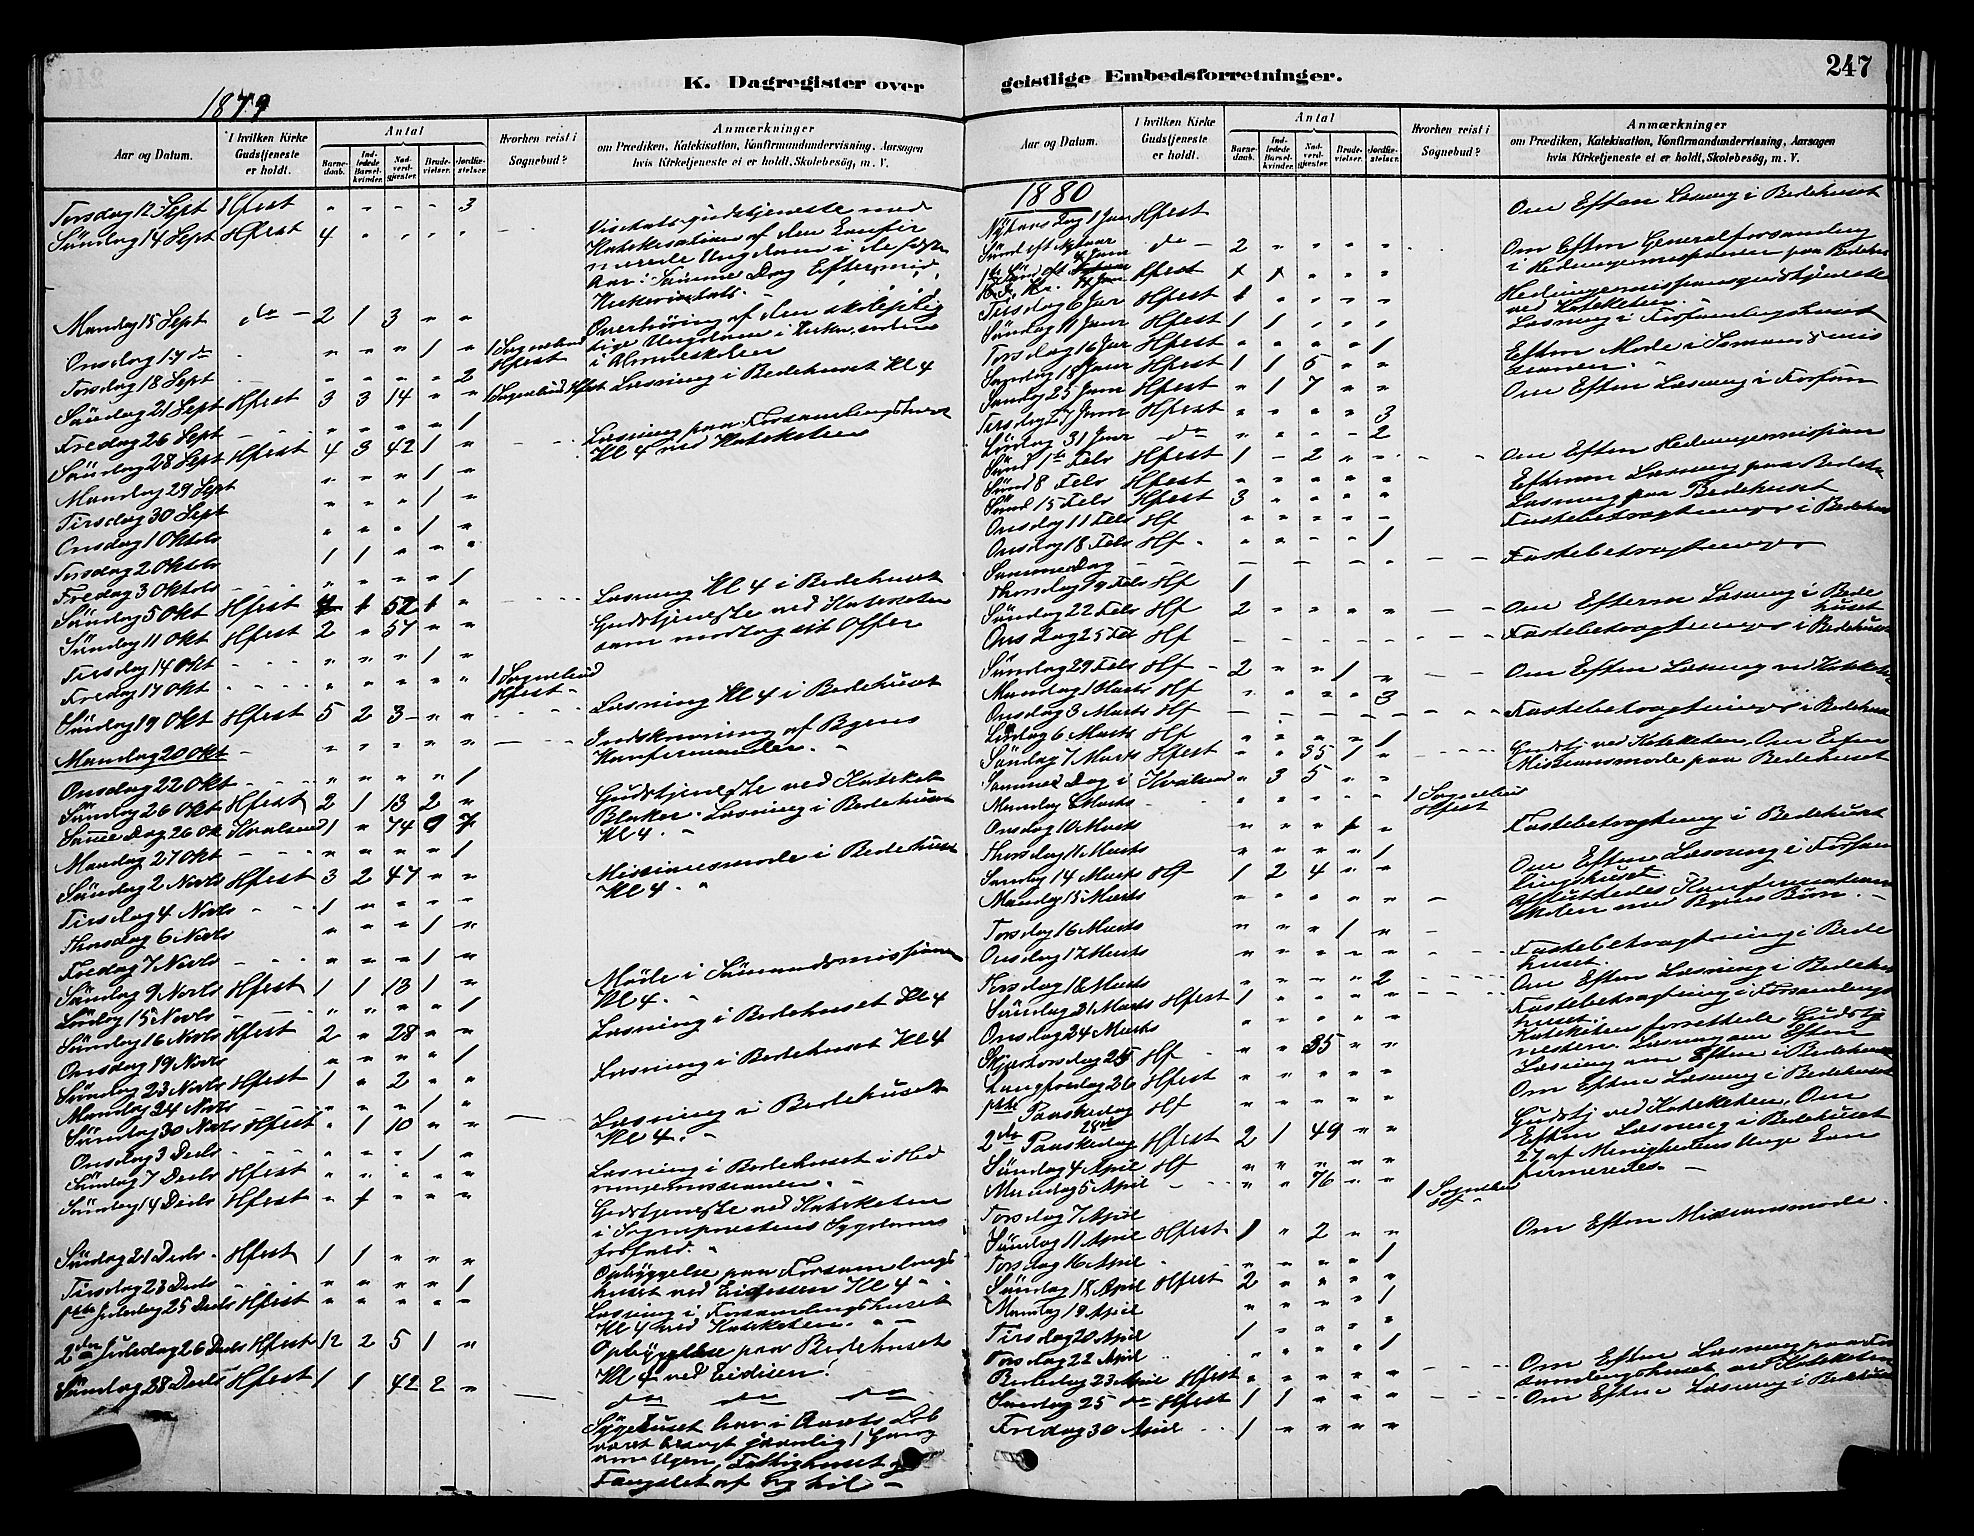 K. Dagregister over
geistlige Embedsforretninger.
247
1879
Aar og Datum.
I hvilken Kirke Gudstjeneste er holdt.
Antal
Barnedaab.
Indledede Barselkvinder.
Nadverdgjester.
Brudevielser.
Jordfæstelser.
Hvorhen reist i Sognebud?
Anmærkninger
om Prædiken, Katekisation, Konfirmandundervisning, Aarsagen
hvis Kirketjeneste ei er holdt, Skolebesøg, m. V.
Torsdag 12 Sept Hfest " " " " 3
Søndag 14 Sept Hfest 4 " " " " Visitatsgudstjeneste med
Katekisation af den konfir
merede Ungdom
Mandag 15 Sept do 2 1 3 " " Overhøring af den skolepligtige Ungdom i Kirken
i Almueskolen
Onsdag 17 do " " " 1 " 1 Sognebud Hfest
Torsdag 18 Sept " " " " 2
Søndag 21 Sept Hfest 3 3 14 " " 1 Sognebud Hfest Læsning i Bedehuset Kl 4
Fredag 26 Sept " " " " 1
Søndag 28 Sept Hfest 4 3 42 1 " Læsning paa Forsamlingshuset
Kl 4 ved Kateketen
Mandag 29 Sept " " " 1 "
Tirsdag 30 Sept " " " 1 "
Onsdag 1 Oktob " " " 1 "
Torsdag 2 Oktob 1 1 " " "
Fredag 3 Oktob " " " " 1
Søndag 5 Okt Hfest 4 1 52 1 " Læsning Kl 4 i Bedehuset
Søndag 11 Okt Hfest 2 " 57 " " Gudstjeneste ved Kateketen
som modtog sit Offer
Tirsdag 14 Okt " " " 1 "
Fredag 17 Okt " " " " " 1 Sognebud Hfest
Søndag 19 Okt Hfest 5 2 3 " " Læsning Kl 4 i Bedehuset
Mandag 20 Okt " " " " " Indskrivning af Byens
Konfirmander.
Onsdag 22 Okt " " " " 1
Søndag 26 Okt Hfest 2 1 13 2 " Gudstjeneste ved Kateket
Samme Dag 26 Ok Kvalsund 1 " 74 0 7 Læsning i Bedehuset
Kl 4.
Mandag 27 Okt " " " " 1
Søndag 2 Novb Hfest 3 2 47 " " Missionsmøde i Bedehuset
Kl 4.
Tirsdag 4 Novb 1 " " " "
Thorsdag 6 Novb " " " 1 "
Fredag 7 Novb " " " 1 "
Søndag 9 Novb Hfest 1 1 13 1 " Møde i Sømandsmissionen
Kl 4.
Lørdag 15 Novb " " " " 1
Søndag 16 Novb Hfest 2 " 28 " " Læsning i Bedehuset Kl 4
Onsdag 19 Novb " " " " 1
Søndag 23 Novb Hfest 1 " 2 " " Læsning i Bedehuset Kl 4
Mandag 24 Novb " " " 1 "
Søndag 30 Novb Hfest " 1 10 " " Læsning i Bedehuset
Kl 4.
Onsdag 3 Decb " " " 1 "
Søndag 7 Decb Hfest " " " " " Læsning i Bedehuset i Hed
ningemissionen.
Søndag 14 Decb Hfest " 1 " " " Gudstjeneste ved Kateketen
i Sognepræstens Sygdoms
forfald.
Søndag 21 Decb Hfest 1 1 " " " Opbyggelse paa Forsamlings
huset ved Kl 4
Tirsdag 23 Decb " " " " 1
1ste Juledag 25 Decb Hfest " " " " " Læsning i Forsamlingshuset
Kl 4 ved Kateketen.
2den Juledag 26 Decb Hfest 12 2 5 1 " Opbyggelse paa Bedehuset
Kl 4 ved
Søndag 28 Decb Hfest 1 1 42 2 " do do do
Sygehuset har i Aarets Løb
været besøgt jævnlig 1 Gang
om Ugen, Fattighuset og
Fængslet af og til
Aar og Datum.
I hvilken Kirke Gudstjeneste er holdt.
Antal
Barnedaab.
Indledede Barselkvinder.
Nadverdgjester.
Brudevielser.
Jordfæstelser.
Hvorhen reist i Sognebud?
Anmærkninger
om Prædiken, Katekisation, Konfirmandundervisning, Aarsagen
hvis Kirketjeneste ei er holdt, Skolebesøg, m. V.
1880
Nytaars Dag 1 Jan Hfest Om Eftm Læsning i Bedehuset
Sønd eft Nytaar 4 Janr do 2 " " " " Om Eftm Generalforsamling
i Hedningemissionen paa Bedehus
Hfest Hedningemissionsgudstjeneste
ved Kateketen
Tirsdag 6 Jan Hfest 1 " " " "
Søndag 11 Janr Hfest 1 1 " " " Læsning i Forsamlingshuset
Torsdag 16 Jan Hfest " " " " 1
Søndag 18 Janr Hfest 1 1 5 " " Eftm Møde i Sømandsmis
sionen.
Søndag 25 Janr Hfest " 1 7 " " Om Eftm Læsning i Forsam
Janr Hfest " " " " 3
Lørdag 31 Janr do " " " " 2
Sønd 1ste Feb Hfest 1 " 2 " " Om Eftm Hedningemission
Sønd 8 Feb Hfest " " " " " Eftm Læsning paa Bedehs
Sønd 15 Feb Hfest 3 " " " " Læsning paa Bedehuset
Onsdag 11 Feb Hf " " " " " Fastebetragtninger i Bedehus
Onsdag 18 Feb Hf " " " " 1
Samme Dag Fastebetragtninger
Thorsdag 19 Feb Hf 1
Søndag 22 Feb Hf 2 " " " " Om Efterm Læsning i Bede
huset
Onsdag 25 Feb Hf Fastebetragtninger i Bedehuset
Søndag 29 Feb Hf 2 " " 1 " Om Eftm Læsning ved Kateket
Mandag 1 Marts Hf " " " " 3
Onsdag 3 Marts Hf Fastebetragtninger i Bedehus
Lørdag 6 Marts Hf " " " " 1
Søndag 7 Marts Hfest " " 35 1 " Gudstj ved Kateketen, Om Eftm
Missionsmøde paa Bedehuset
Samme Dag i Kvalsund " 3 5 " "
Mandag 8 Marts " " " " " 1 Sognebud Hfest
Onsdag 10 Marts " " " 1 " Fastebetragtning i Bedehuset
Thorsdag 11 Marts " " " " 1
Søndag 14 Marts Hf 1 2 4 " " Om Eftm Læsning i Forsam
lingshuset
Mandag 15 Marts " " " " " Afsluttedes Konfirmations
skolen med Byens Børn.
Torsdag 16 Marts " " " 1 "
Onsdag 17 Marts Fastebetragtning i Bede
huset.
Torsdag 18 Marts " " " " 2
Søndag 21 Marts Hfest 1 " " " " Om Eftm Læsning i Bedehus
Onsdag 24 Marts " " " " " Fastebetragtning i Forsamlings
huset.
Skjærtorsdag 25 Hf " " 35 " " Kateketen forrettede Gudstj
nesten. Læsning om Eftm
Langfredag 26 Hfest " " " " " Læsning om Eftm i Bedehuset
1ste Paaskedag 28de Hf " " " " " Om Eftm Læsning i Bedehuset
2den Paaskedag Hfest 2 1 49 " " Gudstj ved Kateketen, Om
Eftm Læsning i Bedehuset
Søndag 4 April Hf " " " " " 27 af Menighedens Unge kon
firmeredes
Mandag 5 April " " 76 " "
Torsdag 7 April 1 Sognebud Hf
Søndag 11 April Hfest 1 " 2 " " Om Eftm Missionsmøde.
Torsdag 16 April " " " " 1
Søndag 18 April Hfest 2 " " " "
Mandag 19 April " " " " 1
Tirsdag 20 April 1 " " " "
Torsdag 22 April " " " " 1
Bededag 23 April Hfest " " " " " Om Eftm Læsning paa For
samlingshuset ved Kateketen
Søndag 25 do Hfest 1 1 " " " Om Eftm Læsning i Bedehuset
Fredag 30 April 1 " " " "